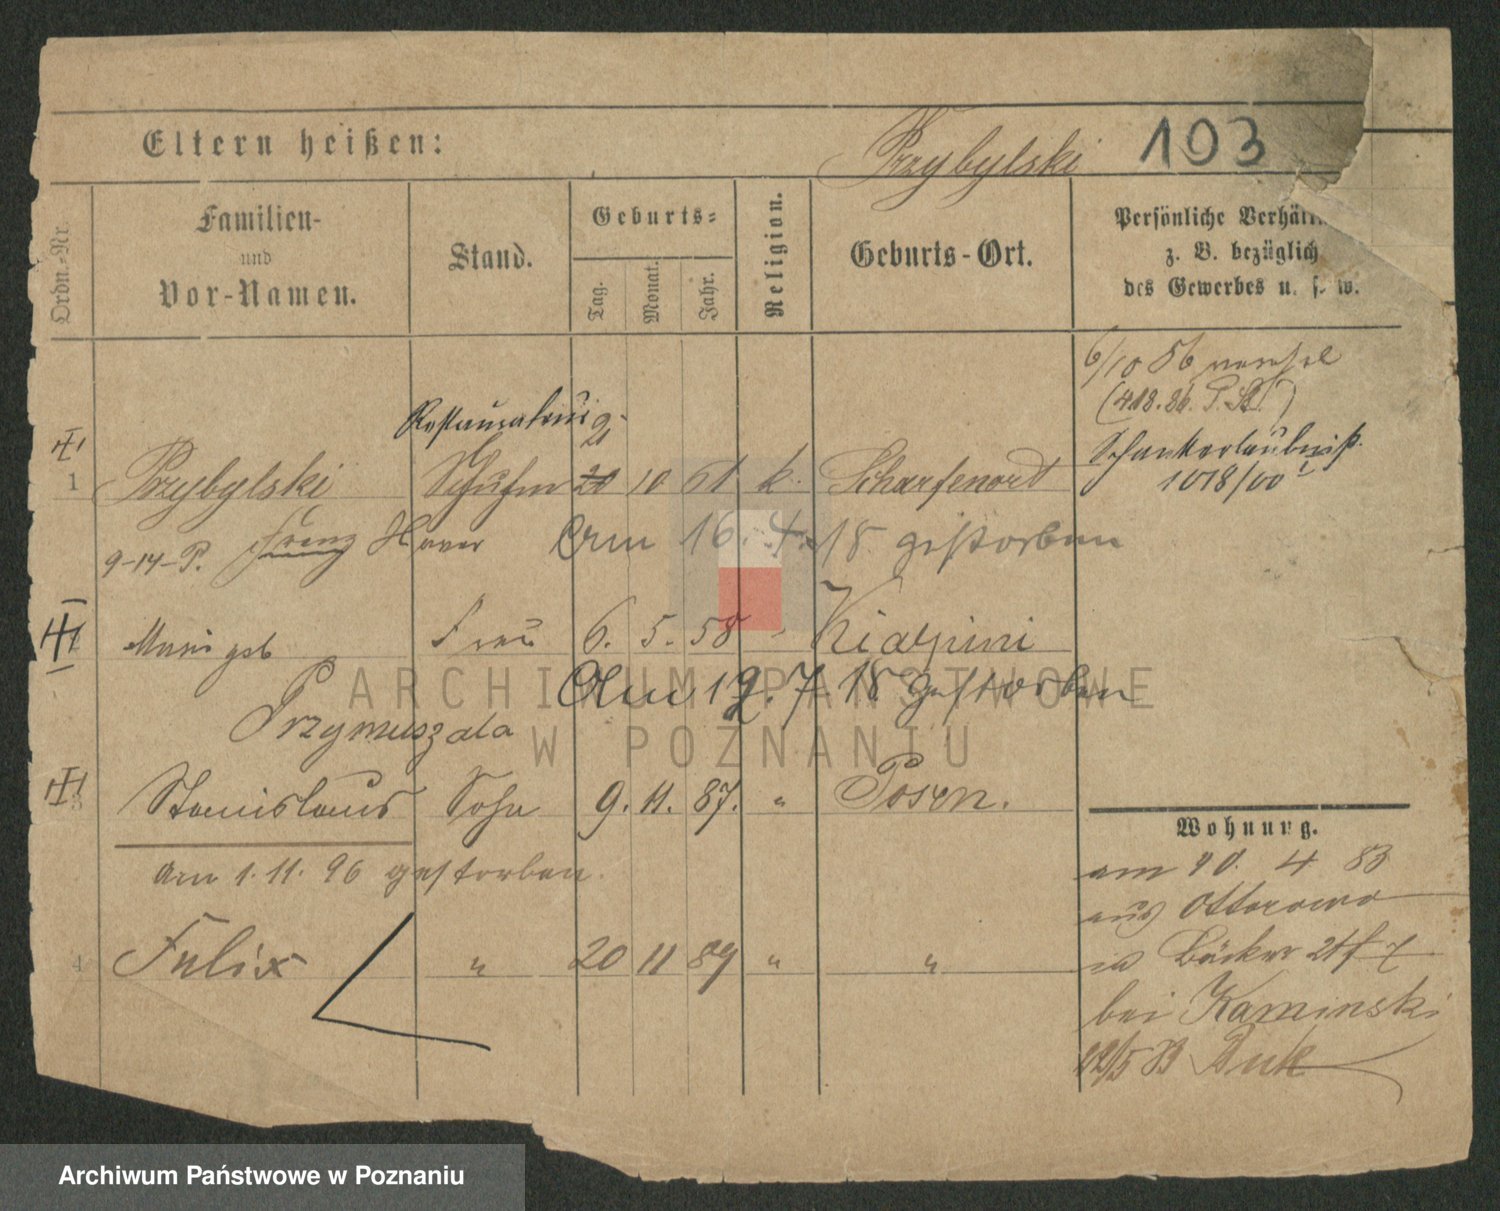 Eltern heißen:
Przybylski 103
Ordn.-Nr.
Familien-
und
Vor-Namen.
Stand.
Geburts=
Tag. Monat. Jahr.
Religion.
Geburts-Ort.
Persönliche Verhält
z. B. bezüglich
des Gewerbes u. s. w.
6/10 86
(418.86. P. )
Restaurateur 2
Schankerlaubniß
1 Przybylski 20 10 61 k. Scharfenort
1018/00
9-14-P. Franz Xaver Am 16. 4. 18 gestorben
Marie geb Frau 6. 5. 58 "
Am 19. 7. 18 gestorben
Przymuszala
3 Stanislaus Sohn 9. 11. 87. " Posen.
am 1. 11. 96 gestorben.
4 Felix " 20 11 89 " "
Wohnung.
am 10. 4 83
aus Ottorowo
in Bäcker
bei Kaminski
Buk
ARCHIWUM PAŃSTWOWE
W POZNANIU
Archiwum Państwowe w Poznaniu